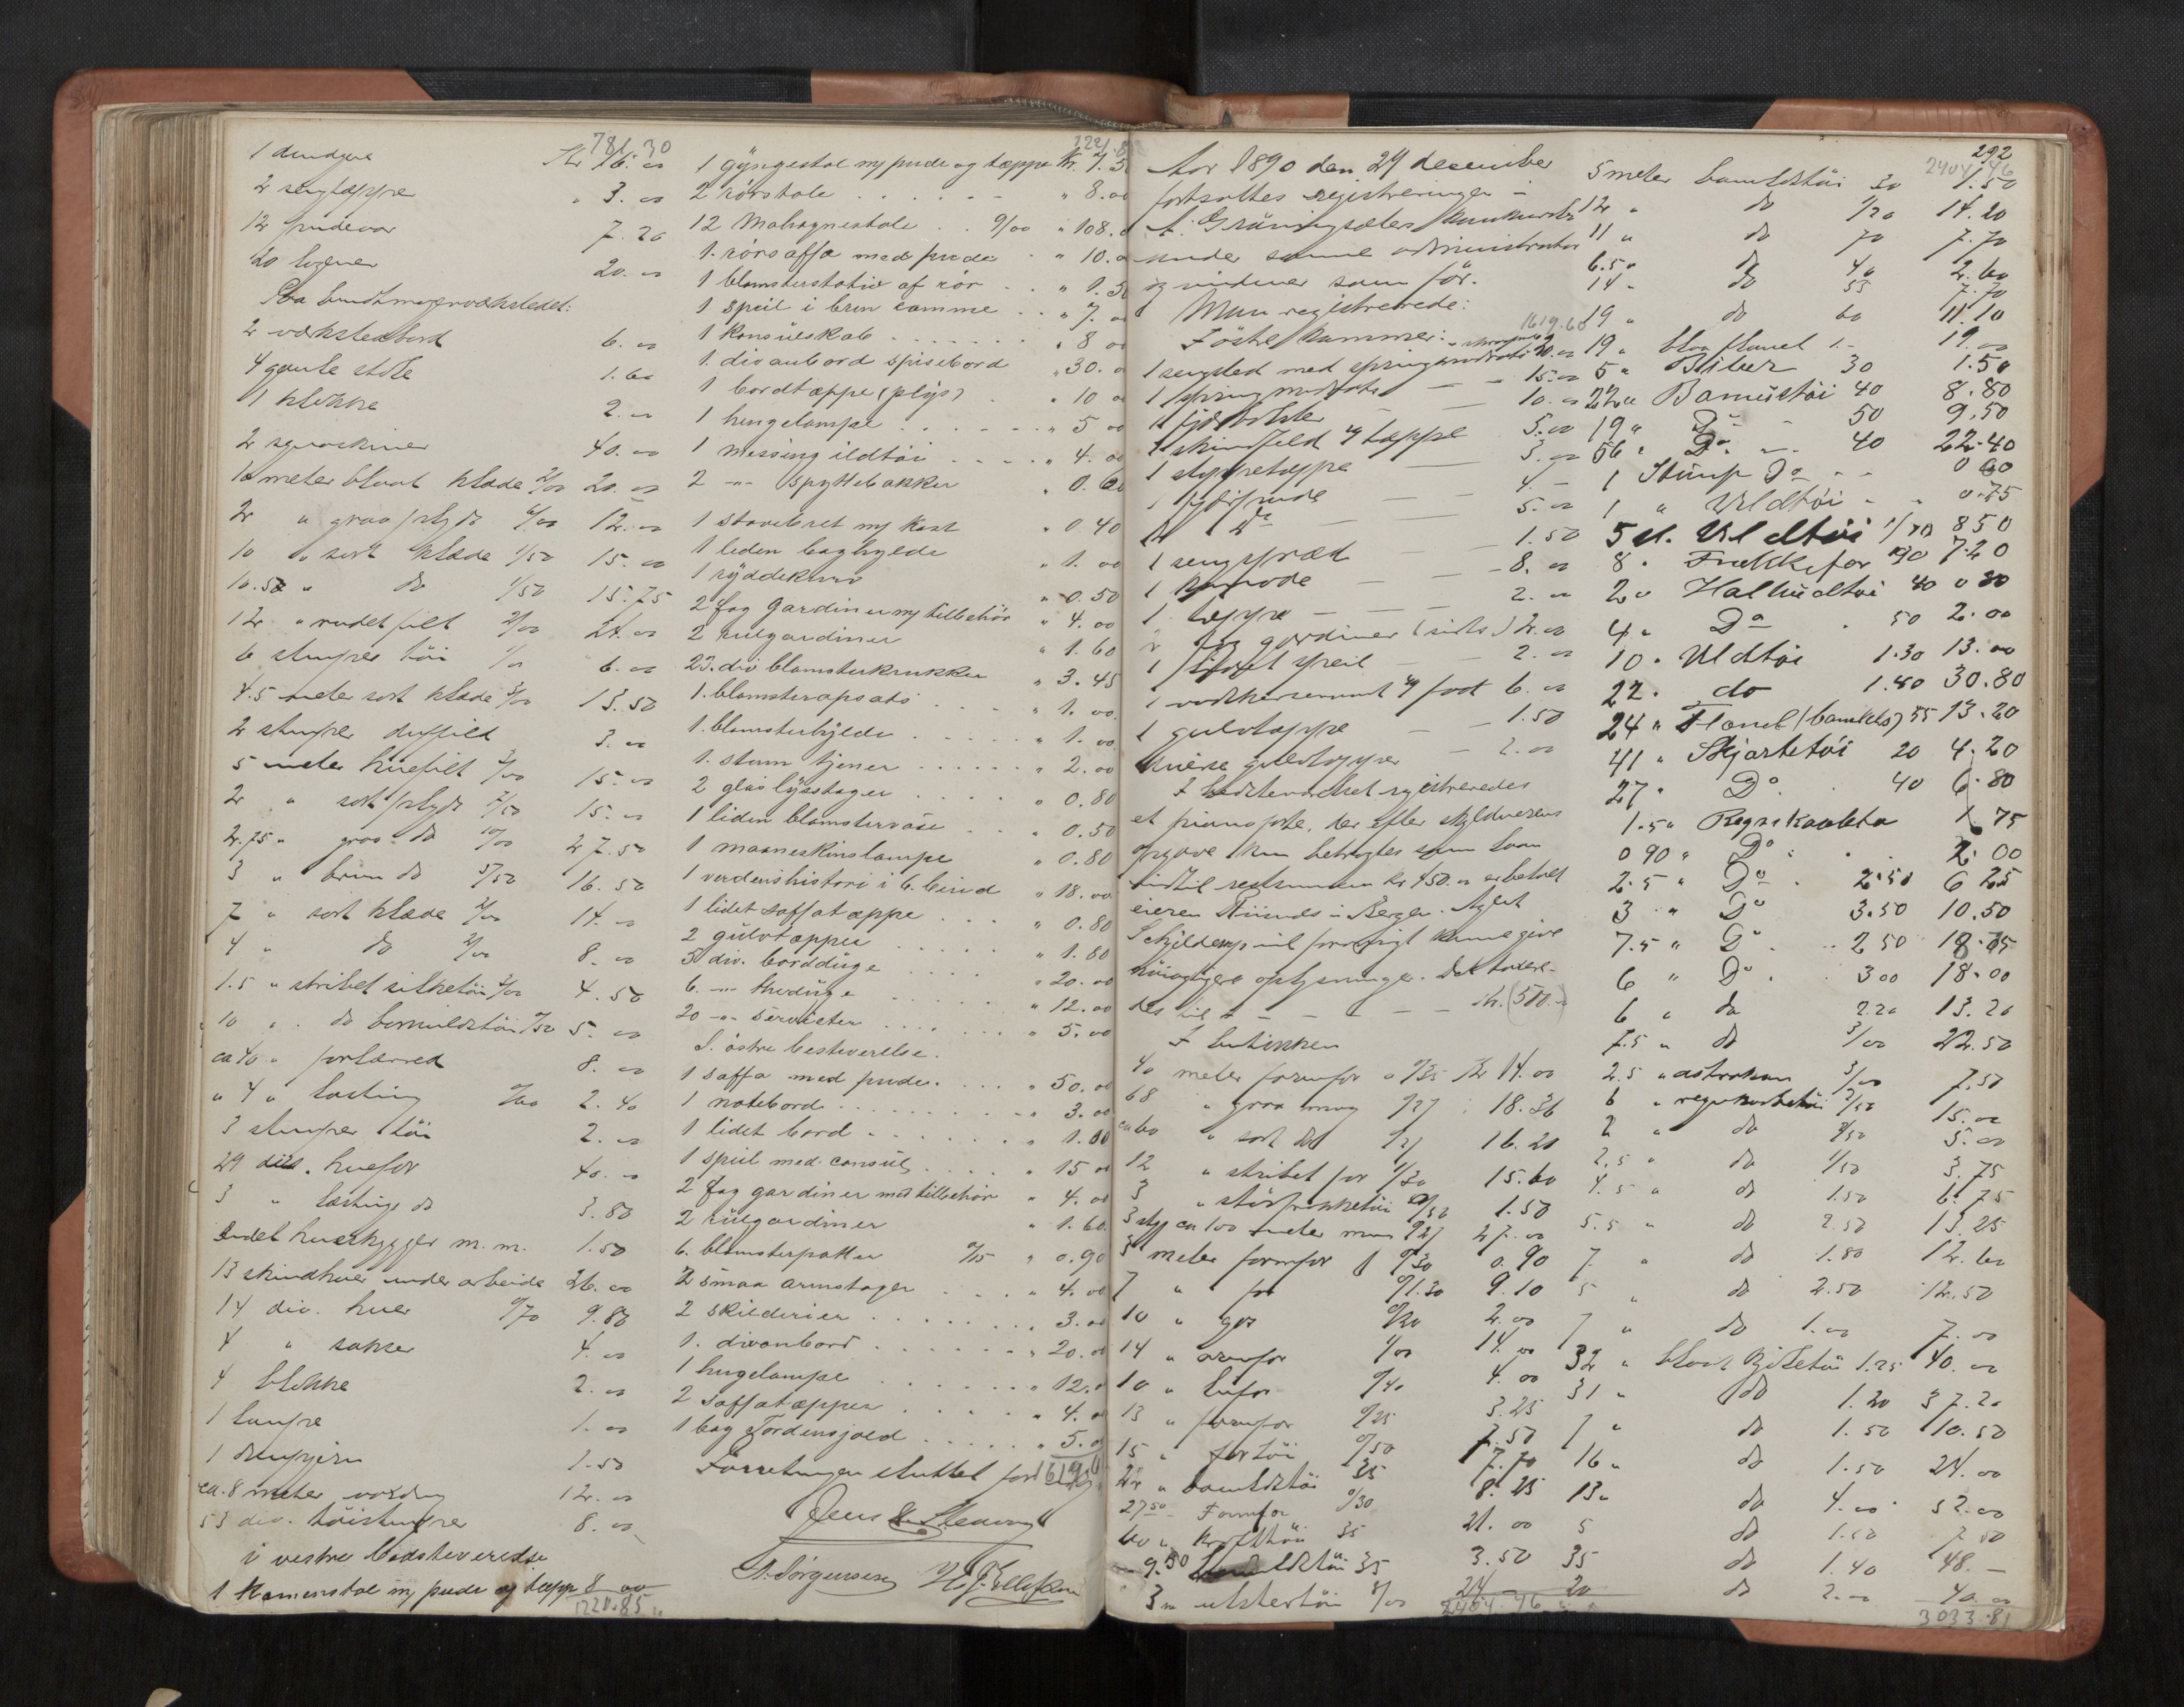 781.30
1 dundyne Kr 16.00
2 sengtæpper " 3.00
12 pudevar 7.20
20 lagener 20.00
Paa bundtmagerværkstedet:
2 værkstedbord 6.00
4 gamle stole 1.60
1 klokke 2.00
2 symaskiner 40.00
10 meter blaat klæde 2/00 20.00
2 " graa plyds 6/00 12.00
10 " sort klæde 1/50 15.00
10.50 " do 1/50 15.75
12 " rudet filt 2/00 24.00
6 stumper töi 1/00 6.00
4.5 meter sort klæde 3/00 13.50
2 stumper duffild 3.00
5 meter huefilt 3/00 15.00
2 " sort plyds 7/50 15.00
2.75 " graa do 10/00 27.50
3 " brun do 5/50 16.50
7 " sort klæde 2/00 14.00
4 " do 2/00 8.00
1.5 " stribet silketöi 3/00 4.50
10 " do bomuldstöi 0/50 5.00
ca 40 " forlærred 8.00
" 4 " lasting 0/60 2.40
3 stumper töi 2.00
29 dus. huefor 40.00
3 " lastings do 3.80
Endel hueskygger m.m. 1.50
13 skindhuer under arbeide 26.00
14 div. huer 0/70 9.80
4 " sakser 4.00
4 blokke 2.00
1 lampe 1.00
1 1.50
ca. 8 meter 12.00
53 div. töistumper 8.00
i vestre bedsteværelse
1 Kamerstol m/ pude og tæppe 8 00
1220.85
1 gyngestol m/ pude og tæppe Kr. 7.5
2 rörstole " 8.00
12 Mahognistole 9/00 " 108.0
1. rörsoffa med pude " 10.0
1 blomsterstativ af rör " 1.50
1 speil i brun ramme " 7.00
1 konsulskab " 8 00
1. divanbord spisebord " 30.0
1 bordtæppe (plys) " 10 0
1 hengelampe " 5 00
1 messing ildtöi " 4.00
2 -"- spyttebakker " 0.60
1 støvebret m/ kost " 0.40
1 liden baghylde " 1.00
1 ryddekurv " 0.50
2 fag gardiner m/ tilbehör " 4.00
2 rulgardiner " 1.60
23. div blomsterkrukker " 3.45
1. blomsteropsats " 1.00
1. blomsterhylde " 1.00
1. stum tjener " 2.00
2 glas lysstager " 0.80
1 liden blomstervase " 0.50
1 maaneskinslampe " 0.80
1 verdenshistori i 6. bind " 18.00
1 lidet soffatæppe " 0.80
2 gulvtæpper " 1.80
3 div. bordduge " 20.00
6. -"- theduge " 12.00
20 -"- servietter " 5.00
I. östre besteværelse.
1 soffa med puder. " 50.00
1 notebord " 3.00
1 lidet bord " 1.00
1 speil med consul " 15 00
2 fag gardiner med tilbehör " 4.00
2 rulgardiner " 1.60
6. blomsterpotter 0/15 " 0.90
2 smaa armstager " 4.00
2 skilderier " 3.00
1. divanbord " 20.00
1 hengelampe " 12.0
2 soffatæpper " 4.0
1 bog Tordensjold " 5.0
Forretningen sluttet for
A. Jörgensen
Aar 1890 den 29 december
fortsattes registreringen i
A. Gröningsæters konkursbo
under samme administrator
og vidner som för.
Man registrerede:
1619.60
1 sengsted med springmadrats 20.00
1 springmadrats 15.00
10.00
1 skindfeld og tæppe 5.00
1 stoppetæppe 3.00
1 4.-
5.00
1 sengspræd 1.50
1 komode 8.00
1 tæppe 2.00
2 fag gardiner 2.00
1 speil 2.00
1 vadskeservant og fad 6.00
1 gulvtæppe 1.50
gulvtæpper 2.00
I bedsteværelset registreredes
et pianoforte, der efter skyldnerens
opgave kun betragtes som laan
indtil restsummen kr 450.00 er betalt
eieren i Bergen. Agent
Schjelderup vil forövrigt kunne give
nöiagtigere oplysninger. Det taxere-
des til Kr. (500.-)
I butikken
40 meter formfor a 0/35 Kr 14.00
68 " graa 0/27 18.36
ca 60 " sort do 0/27 16.20
12 " stribet for 1/30 15.60
3 " 0/50 1.50
3 stkr ca 100 meter 0/27 27.00
3 meter formfor 0/30 0.90
7 " for 0/1.30 9.10
10 " 0/20 2.00
14 " ærmfor 1/00 14.00
10 " 0/40 4.00
13 " formfor 0/25 3.25
15 " fortöi 0/50 7.50
22 " bomuldstöi 35 7.70
27.50 Formfor 0/30 8.25
60 " 35 21.00
9.50 bomuldstöi 35 3.50
3 " ulstertöi 8/00 24
2404.46
292
2404.46
5 meter bomuldstöi 30 1.50
12 " do 1/20 14.20
11 " do 70 7.70
6.5 " do 40 2.60
14 " do 55 7.70
19 " do 60 11.10
19 " blaa flanel 1.- 19.00
5 " Biber 30 1.50
22 " Bomulstöi 40 8.80
19 " Do 50 9.50
56 " Do 40 22.40
1 Stump Do 0 60
1 " Uldtöi " 0.75
5 M. Uldtöi 1/70 8 50
8 " Frakkefor 90 7.20
2 " Halvuldtöi 40 0 80
4 " Do 50 2.00
10 " Uldtöi 1.30 13.00
22 " do 1.40 30.80
24 " Flanel (bomulds) 55 13.20
41 " Skjortetöi 20 4.20
27 " Do 40 6.80
1.5 " Regnkaabetöi 1.75
0 90 " Do 2.00
2.5 " Do 2.50 6 25
3 " Do 3.50 10.50
7.5 " Do 2 50 18.75
6 " Do 3 00 18.00
6 " do 2.20 13.20
7.5 " do 3/00 22.50
2.5 " astrakan 3/00 7.50
6 " regnkaabetöi 2/50 15.00
2 " do 2/50 5.00
2.5 " do 1/50 3.75
4.5 " do 1.50 6.75
5.5 " do 2.50 13.25
7 " do 1.80 12.60
5 " do 2.50 12.50
7 " do 1.00 7.00
32 " blaat kjoletöi 1.25 40.00
31 " do 1.20 37.20
7 " do 1.50 10.50
16 " do 1.50 24.00
13 " do 4.00 52.00
5 do 1.50 7 50
35 do 1.40 48.-
20 do 2.00 40.00
3033.81